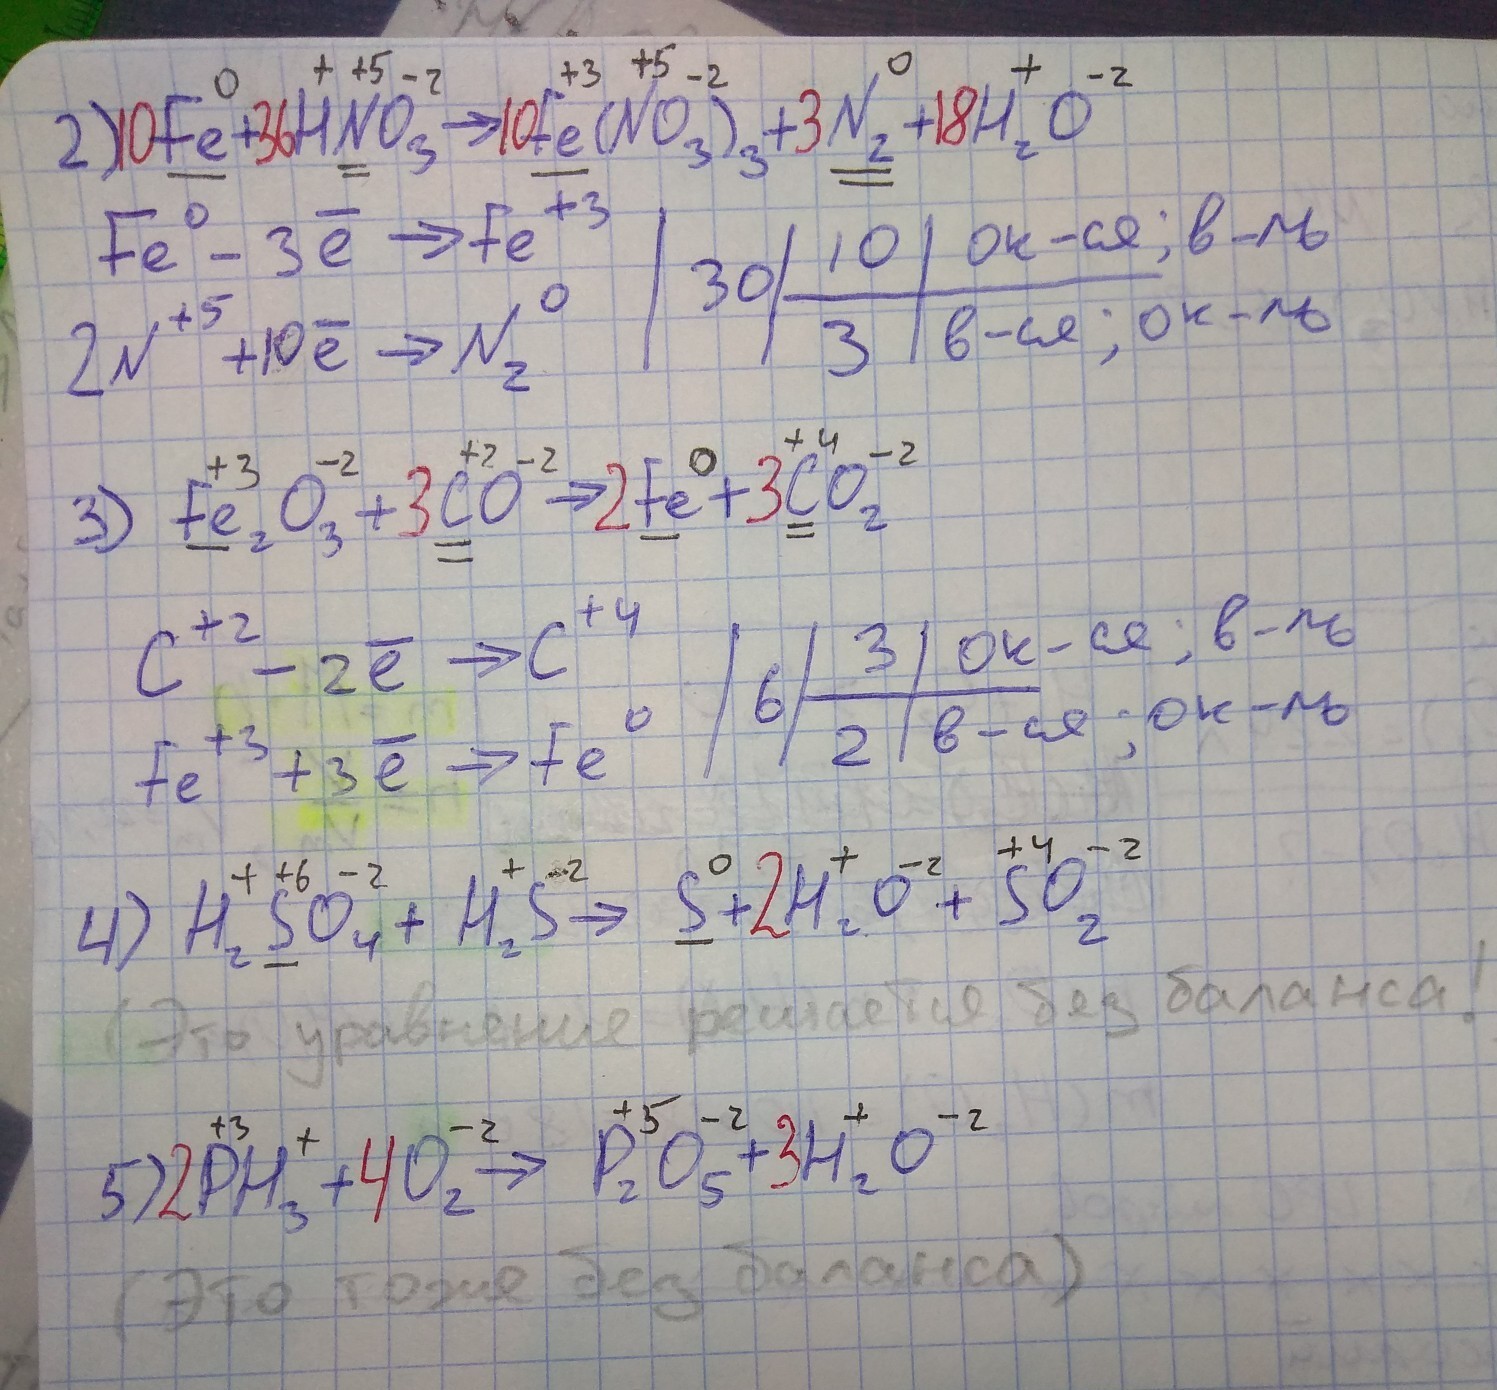 2) 10Fe⁰ + 36H⁺N⁺⁵O₃⁻² → 10Fe⁺³(N⁺⁵O₃⁻²)₃ + 3N₂⁰ + 18H₂⁺O⁻²
Fe⁰ - 3e̅ → Fe⁺³ | 30 | 10 | ок-ся; в-ль
2N⁺⁵ + 10e̅ → N₂⁰ | 3 | в-ся; ок-ль
3) Fe₂⁺³O₃⁻² + 3C⁺²O⁻² → 2Fe⁰ + 3C⁺⁴O₂⁻²
C⁺² - 2e̅ → C⁺⁴ | 6 | 3 | ок-ся; в-ль
Fe⁺³ + 3e̅ → Fe⁰ | 2 | в-ся; ок-ль
4) H₂⁺S⁺⁶O₄⁻² + H₂⁺S⁻² → S⁰ + 2H₂⁺O⁻² + S⁺⁴O₂⁻²
(Это уравнение решается без баланса!
5) 2P⁺³H₃⁺ + 4O₂⁻² → P₂⁺⁵O₅⁻² + 3H₂⁺O⁻²
(Это тоже без баланса)